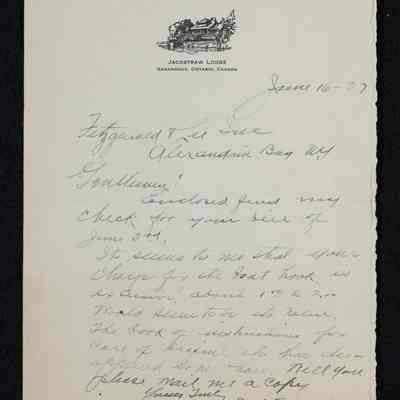 Jackstraw Lodge
Gananoque, Ontario, Canada
June 16-27
Fitzgerald & Lee Inc
Alexandria Bay NY
Gentlemen:
Enclosed find my
check for your bill of
June 2nd.
It seems to me that your
charge for the boat hook is
excessive, about 1.50 to 2.00
would seem to be
The book of instructions for
care of engine
Will you
please mail me a copy
Yours Truly